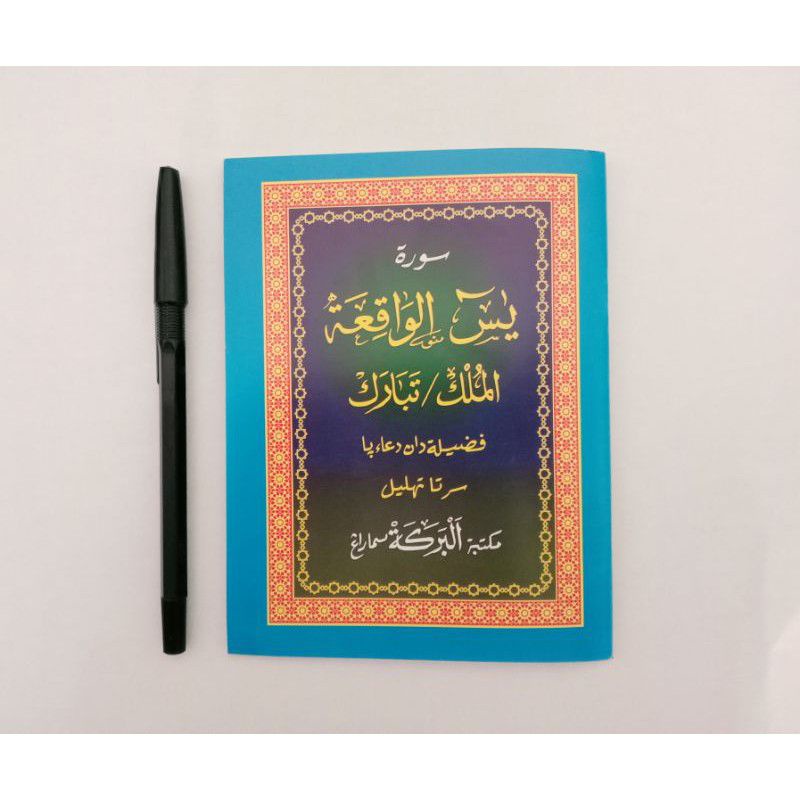 سورة
يٰسٓ الوَاقِعَة
المُلْك / تَبَارَك
فضيلة دان دعاء پا
سرتا تهليل
مكتبة اَلْبَرَكَةْ سماراغ